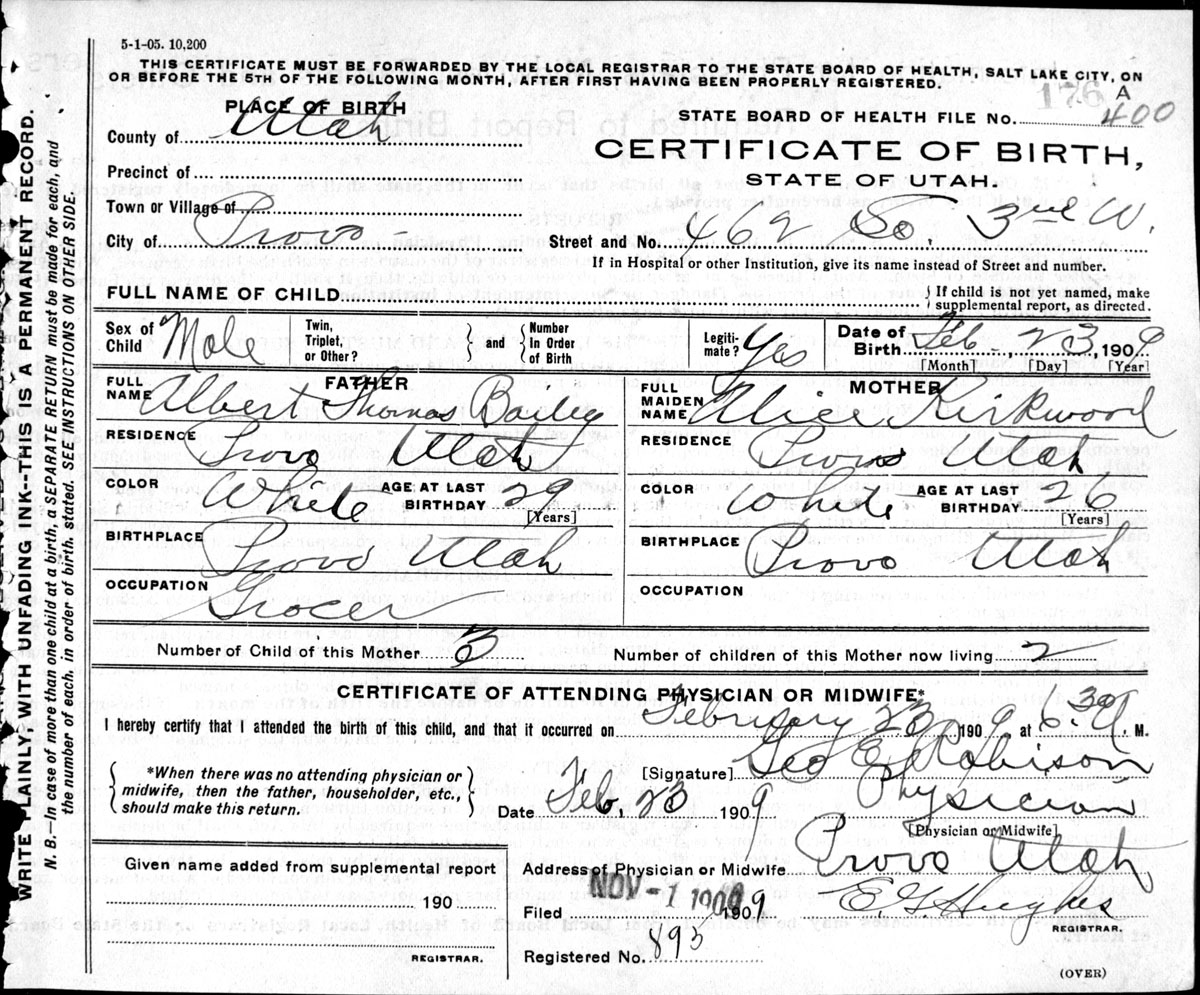 5-1-05. 10,200
THIS CERTIFICATE MUST BE FORWARDED BY THE LOCAL REGISTRAR TO THE STATE BOARD OF HEALTH, SALT LAKE CITY, ON
OR BEFORE THE 5TH OF THE FOLLOWING MONTH, AFTER FIRST HAVING BEEN PROPERLY REGISTERED.
176 A
PLACE OF BIRTH
STATE BOARD OF HEALTH FILE No. 400
County of Utah
CERTIFICATE OF BIRTH,
Precinct of
STATE OF UTAH.
Town or Village of
City of Provo Street and No. 462 So. 3rd W.
If in Hospital or other Institution, give its name instead of Street and number.
FULL NAME OF CHILD } If child is not yet named, make
supplemental report, as directed.
Sex of Child Male Twin, Triplet, or Other? } and { Number In Order of Birth Legiti-mate? Yes Date of Birth Feb. 23, 1909
[Month] [Day] [Year]
FATHER
FULL NAME Albert Thomas Bailey
RESIDENCE Provo Utah
COLOR White AGE AT LAST BIRTHDAY 29
[Years]
BIRTHPLACE Provo Utah
OCCUPATION Grocer
MOTHER
FULL MAIDEN NAME Alice Kirkwood
RESIDENCE Provo Utah
COLOR White AGE AT LAST BIRTHDAY 26
[Years]
BIRTHPLACE Provo Utah
OCCUPATION
Number of Child of this Mother 3 Number of children of this Mother now living 2
CERTIFICATE OF ATTENDING PHYSICIAN OR MIDWIFE*
I hereby certify that I attended the birth of this child, and that it occurred on February 23 1909, at 6.30 A. M.
*When there was no attending physician or
midwife, then the father, householder, etc.,
should make this return.
[Signature] Geo E Robison
Date Feb. 23 1909 Physician
[Physician or Midwife]
Given name added from supplemental report
190
REGISTRAR.
Address of Physician or Midwife Provo Utah
NOV -1 1909
Filed 1909 E G Hughes
REGISTRAR.
Registered No. 893
(OVER)
WRITE PLAINLY, WITH UNFADING INK--THIS IS A PERMANENT RECORD.
N. B.--In case of more than one child at a birth, a SEPARATE RETURN must be made for each, and
the number of each, in order of birth, stated. SEE INSTRUCTIONS ON OTHER SIDE.